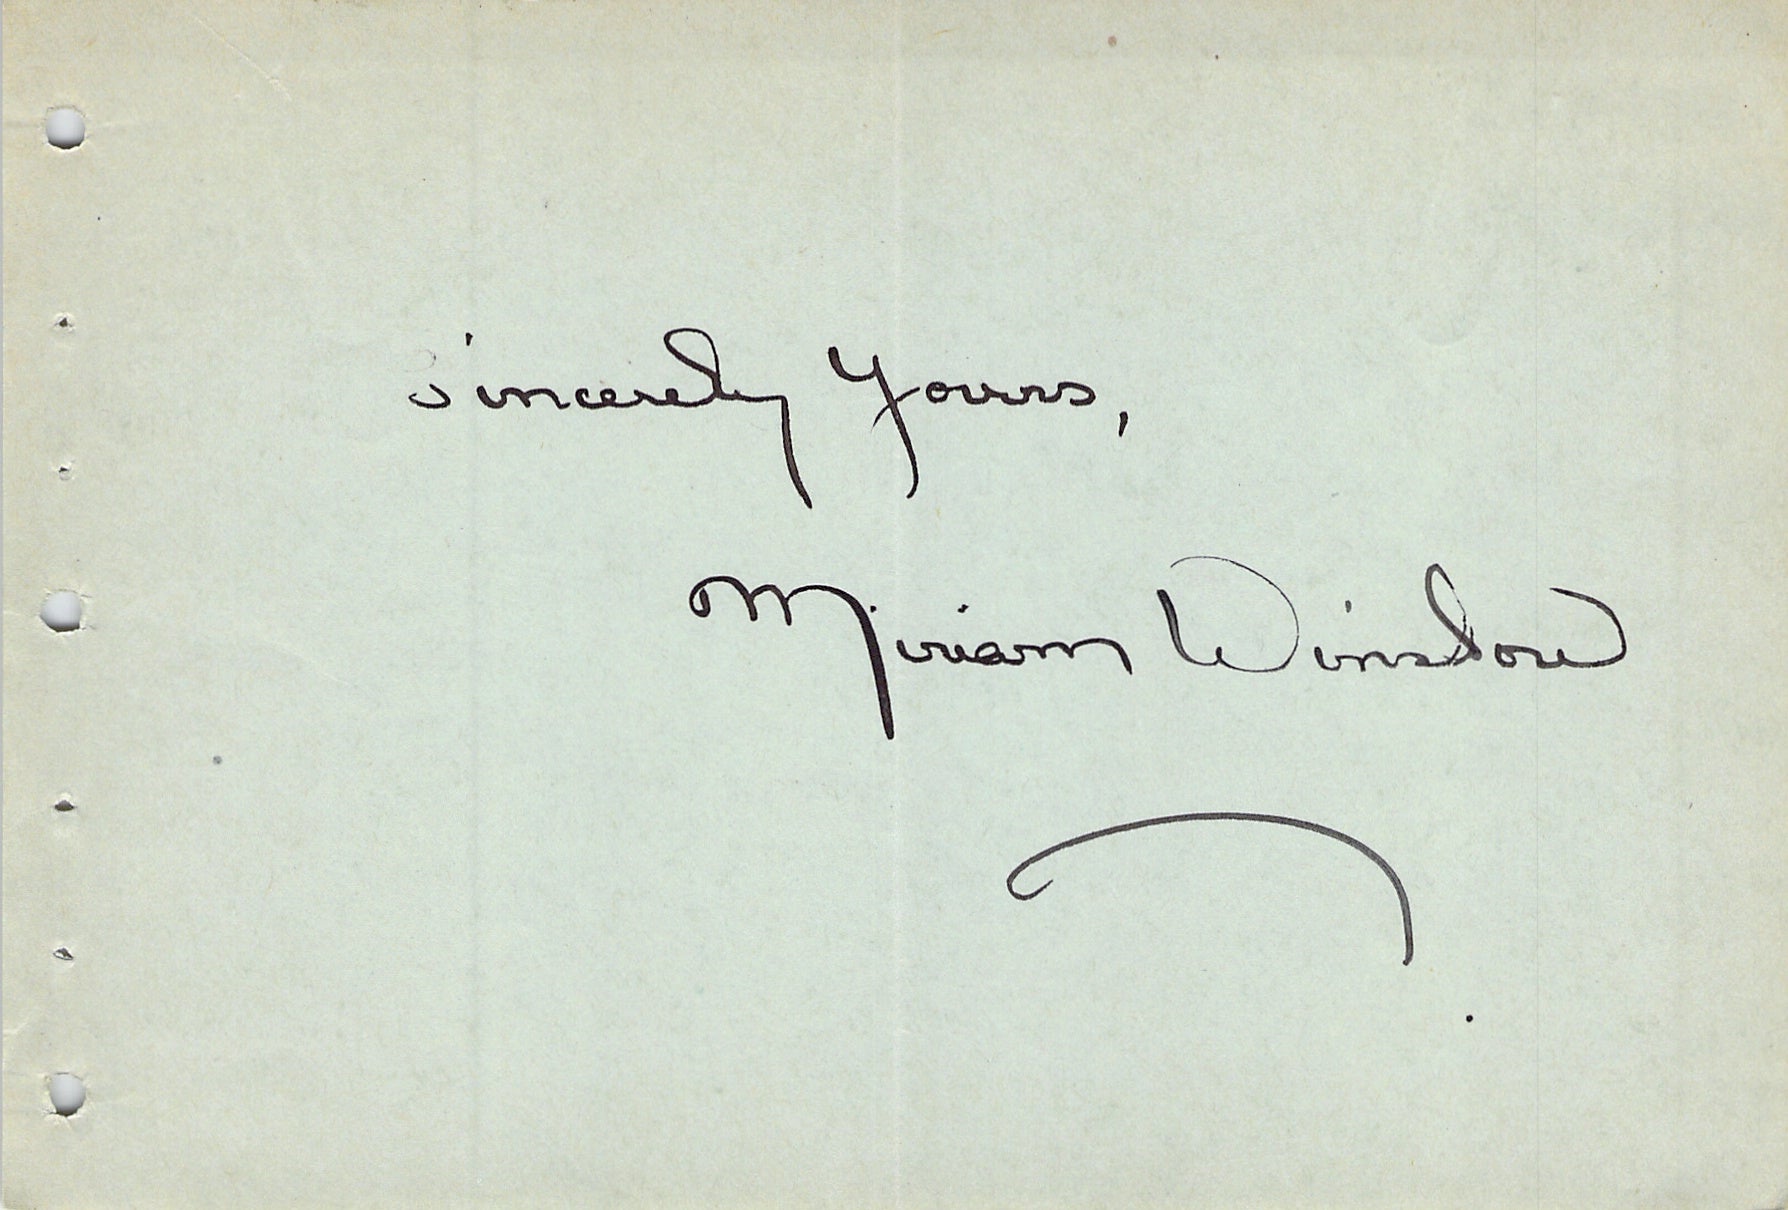 Sincerely Yours,
Miriam Winslow